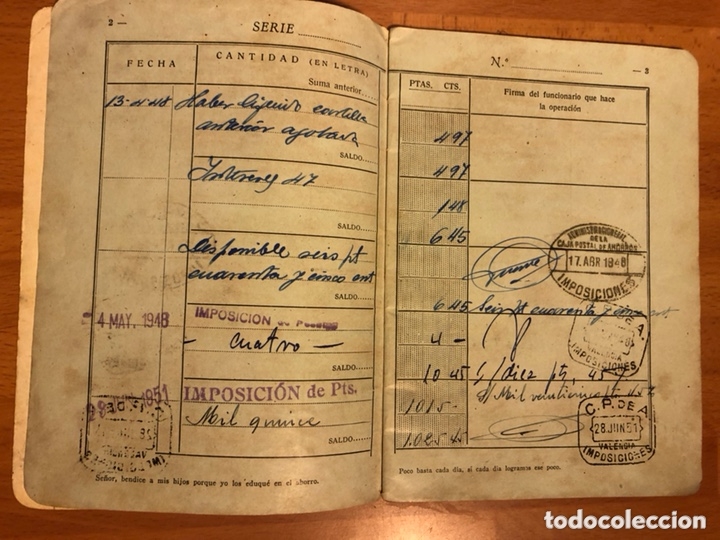 2 —
SERIE
FECHA
CANTIDAD (EN LETRA)
Suma anterior
13-4-48 Haber líquido cartilla
anterior agotada
SALDO
Intereses 47
SALDO
Disponible seis pt
cuarenta y cinco cnt
SALDO
4 MAY. 1948
IMPOSICION de Pesetas
- cuatro -
SALDO
1951
IMPOSICIÓN de Pts.
Mil quince
SALDO
Señor, bendice a mis hijos porque yo los eduqué en el ahorro.
N.º
— 3
PTAS. CTS.
Firma del funcionario que hace
la operación
4 97
4 97
1 48
6 45
ADMINISTRACION
DE LA
CAJA POSTAL DE AHORROS
17 ABR 1948
IMPOSICIONES
6 45 Seis pt cuarenta y cinco cnt
4 -
VALENCIA
IMPOSICIONES
10 45 diez pts, 45
1015 -
Mil
C.P. DE A.
28 JUN 51
VALENCIA
IMPOSICIONES
1.025 45
Poco basta cada día, si cada día logramos ese poco.
todocoleccion